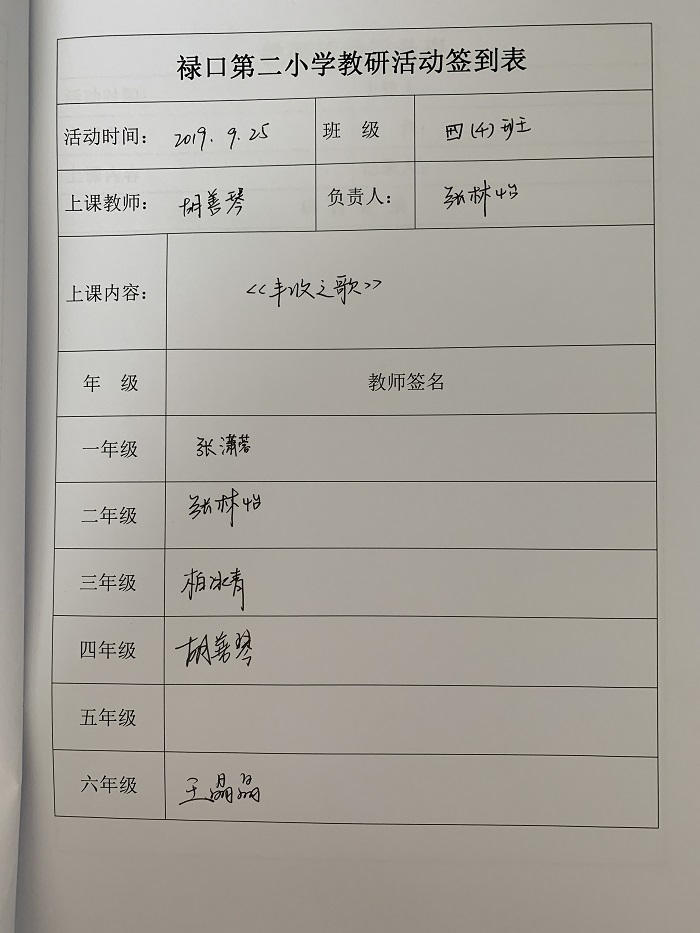 禄口第二小学教研活动签到表
活动时间： 2019.9.25 班 级 四(4)班
上课教师： 胡善琴 负责人： 张林怡
上课内容： <<丰收之歌>>
年 级 教师签名
一年级 张潇蓉
二年级 张林怡
三年级 柏冰青
四年级 胡善琴
五年级
六年级 王晶晶